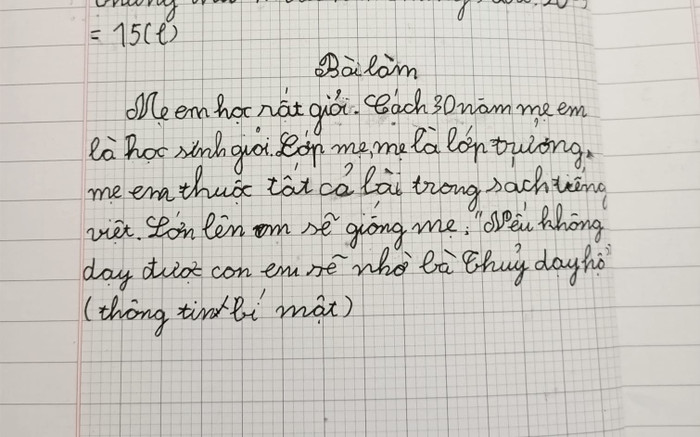 = 15(l)
Bài làm
Mẹ em học rất giỏi. Cách 30 năm mẹ em
là học sinh giỏi. Lớp mẹ, mẹ là lớp trưởng,
mẹ em thuộc tất cả bài trong sach tiếng
việt. Lớn lên em sẽ giống mẹ, "Nếu không
dạy được con em sẽ nhờ bà Thuỷ dạy hộ"
(thông tin bí mật)